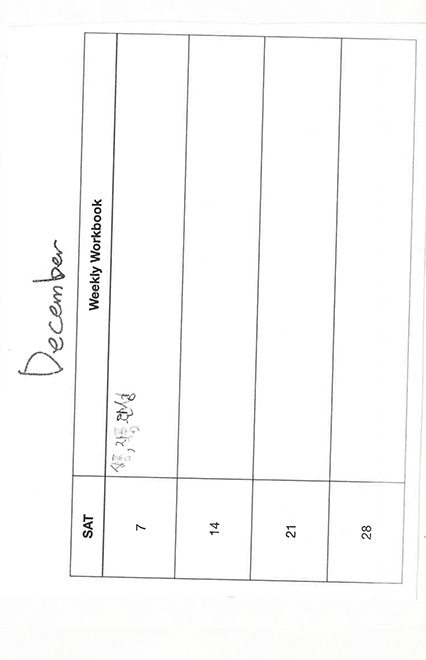 December
SAT Weekly Workbook
7 완성
14
21
28